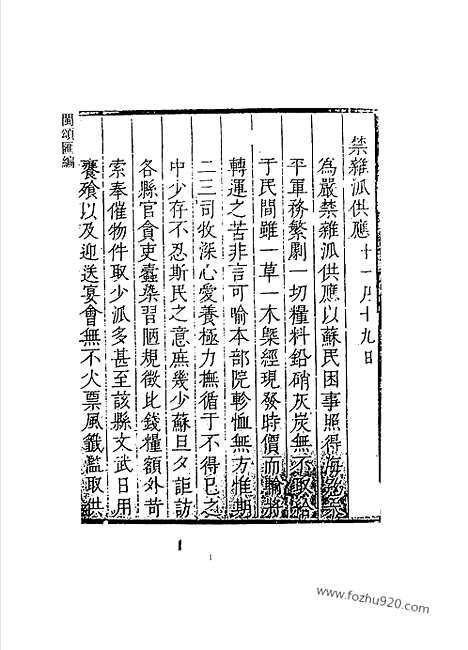 禁雜派供應十一月十九日
為嚴禁雜派供應以蘇民困事照得海
平軍務繁劇一切糧料鉛硝灰炭無不取給
于民間雖一草一木槩經現發時價而輸將
轉運之苦非言可喻本部院軫恤無方惟期
二三司牧深心愛養極力撫循于不得已之
中少存不忍斯民之意庶幾少蘇旦夕詎訪
各縣官貪吏蠹染習陋規徵比錢糧額外苛
索奉催物件取少派多甚至該縣文武日用
饔飱以及迎送宴會無不火票風籤濫取供
閩頌匯編
www.fozhu920.com